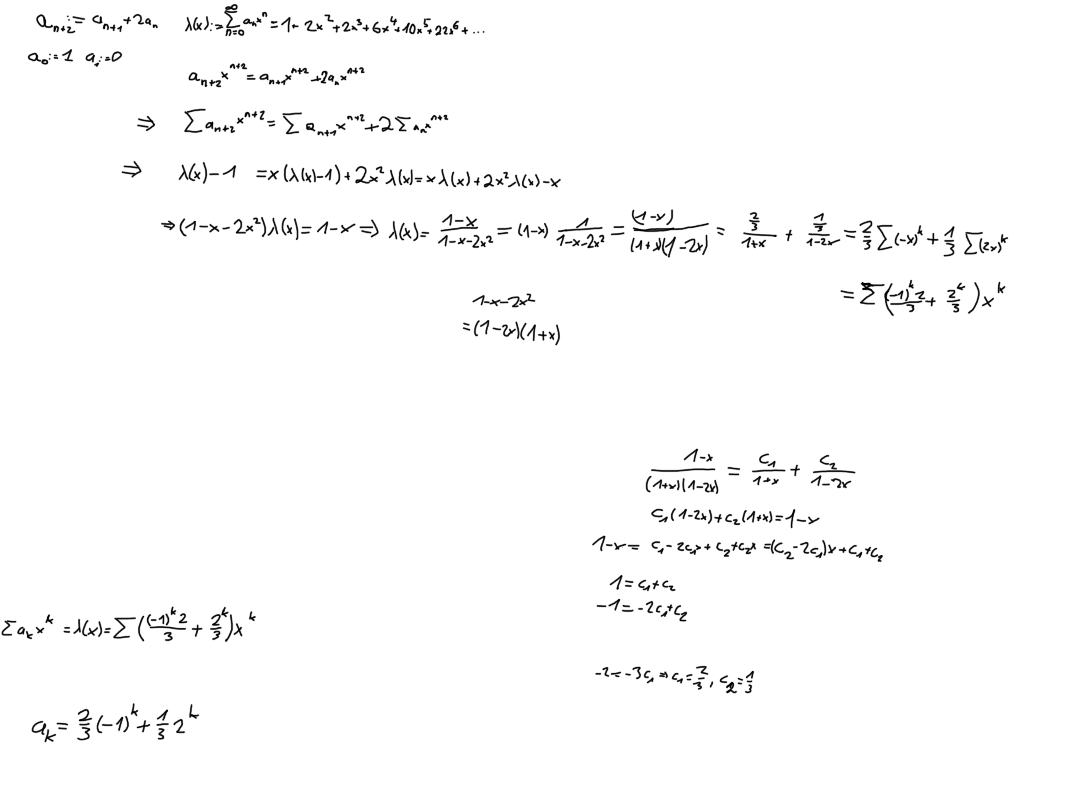 a_{n+2} := a_{n+1} + 2a_n   λ(x) := ∑_{n=0}^{∞} a_n x^n = 1 + 2x^2 + 2x^3 + 6x^4 + 10x^5 + 22x^6 + ...
a_0 := 1   a_1 := 0
a_{n+2} x^{n+2} = a_{n+1} x^{n+2} + 2a_n x^{n+2}
⇒ ∑ a_{n+2} x^{n+2} = ∑ a_{n+1} x^{n+2} + 2 ∑ a_n x^{n+2}
⇒ λ(x) - 1 = x(λ(x) - 1) + 2x^2 λ(x) = x λ(x) + 2x^2 λ(x) - x
⇒ (1 - x - 2x^2) λ(x) = 1 - x ⇒ λ(x) = \frac{1-x}{1-x-2x^2} = (1-x) \frac{1}{1-x-2x^2} = \frac{(1-x)}{(1+x)(1-2x)} = \frac{\frac{2}{3}}{1+x} + \frac{\frac{1}{3}}{1-2x} = \frac{2}{3} ∑ (-x)^k + \frac{1}{3} ∑ (2x)^k
= ∑ (\frac{(-1)^k 2}{3} + \frac{2^k}{3}) x^k
1-x-2x^2
= (1-2x)(1+x)
\frac{1-x}{(1+x)(1-2x)} = \frac{c_1}{1+x} + \frac{c_2}{1-2x}
c_1(1-2x) + c_2(1+x) = 1-x
1-x = c_1 - 2c_1x + c_2 + c_2x = (c_2 - 2c_1)x + c_1 + c_2
1 = c_1 + c_2
-1 = -2c_1 + c_2
-2 = -3c_1 ⇒ c_1 = \frac{2}{3}, c_2 = \frac{1}{3}
∑ a_k x^k = λ(x) = ∑ (\frac{(-1)^k 2}{3} + \frac{2^k}{3}) x^k
a_k = \frac{2}{3} (-1)^k + \frac{1}{3} 2^k